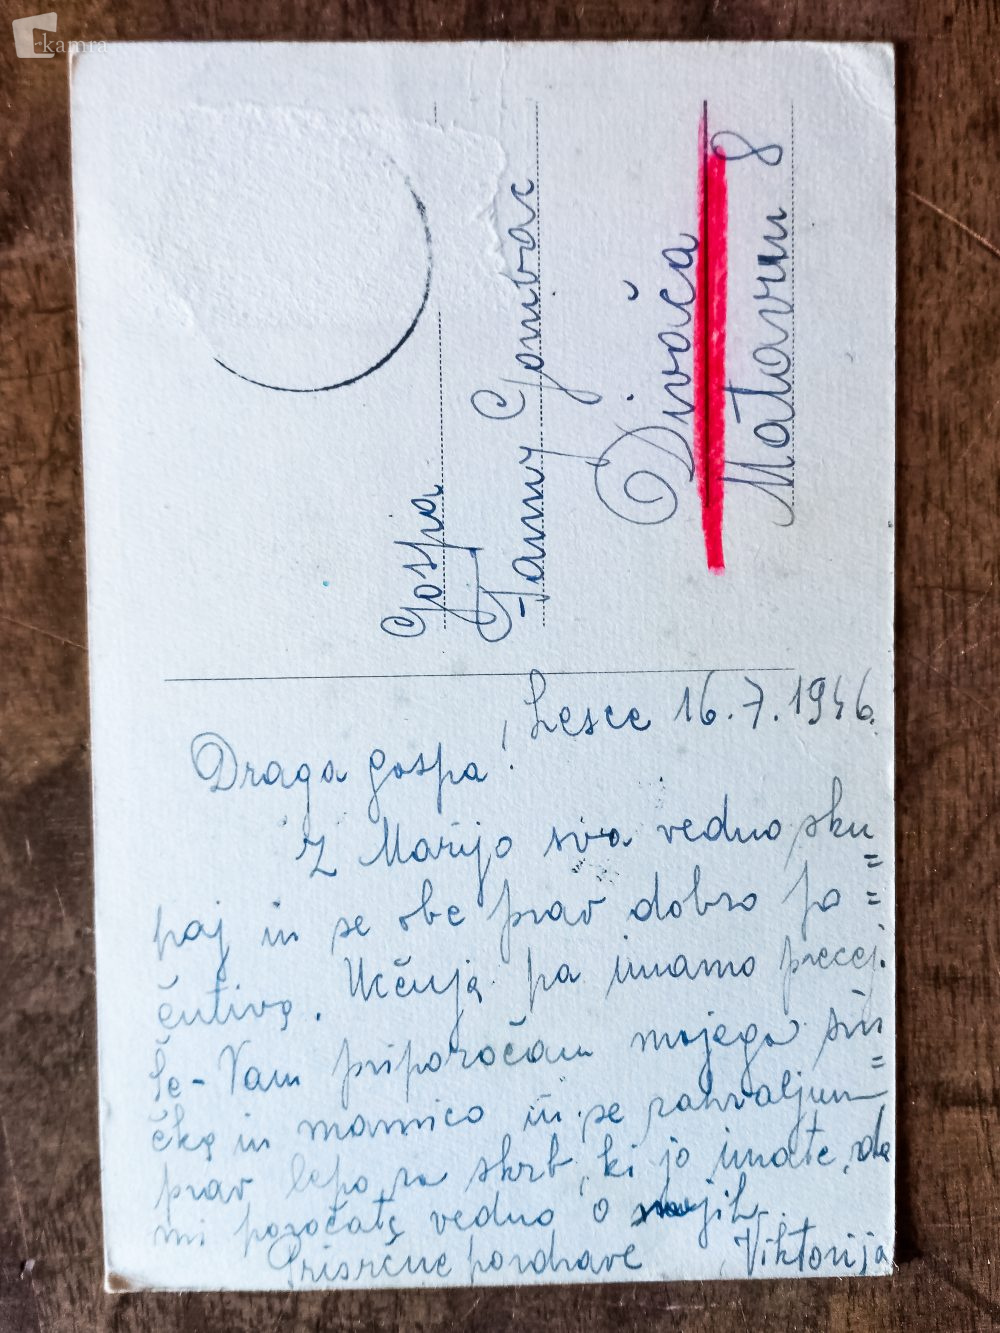 kamra
Gospa
Fanny Gombac
Divača
Matavun 8
Lesce 16.7.1946.
Draga gospa!
Z Marijo sva vedno sku=
paj in se obe prav dobro po=
čutivo. Učenja pa imamo precej.
Še - Vam priporočam mojega sin=
čka in mamico in se zahvaljujem
prav lepo za skrb, ki jo imate, da
mi poročate vedno o mojih.
Prisrčne pozdrave Viktorija